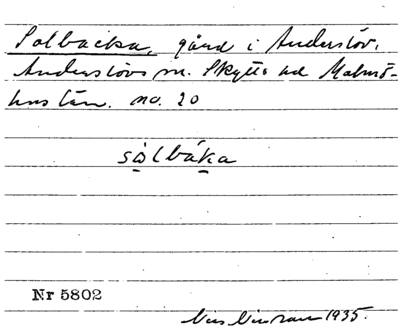 Solbacka, gård i Anderslöv,
Anderslövs sn. Skytts hd Malmö-
hus län. no. 20
sōlbáka
Nr 5802
Nils 1935.